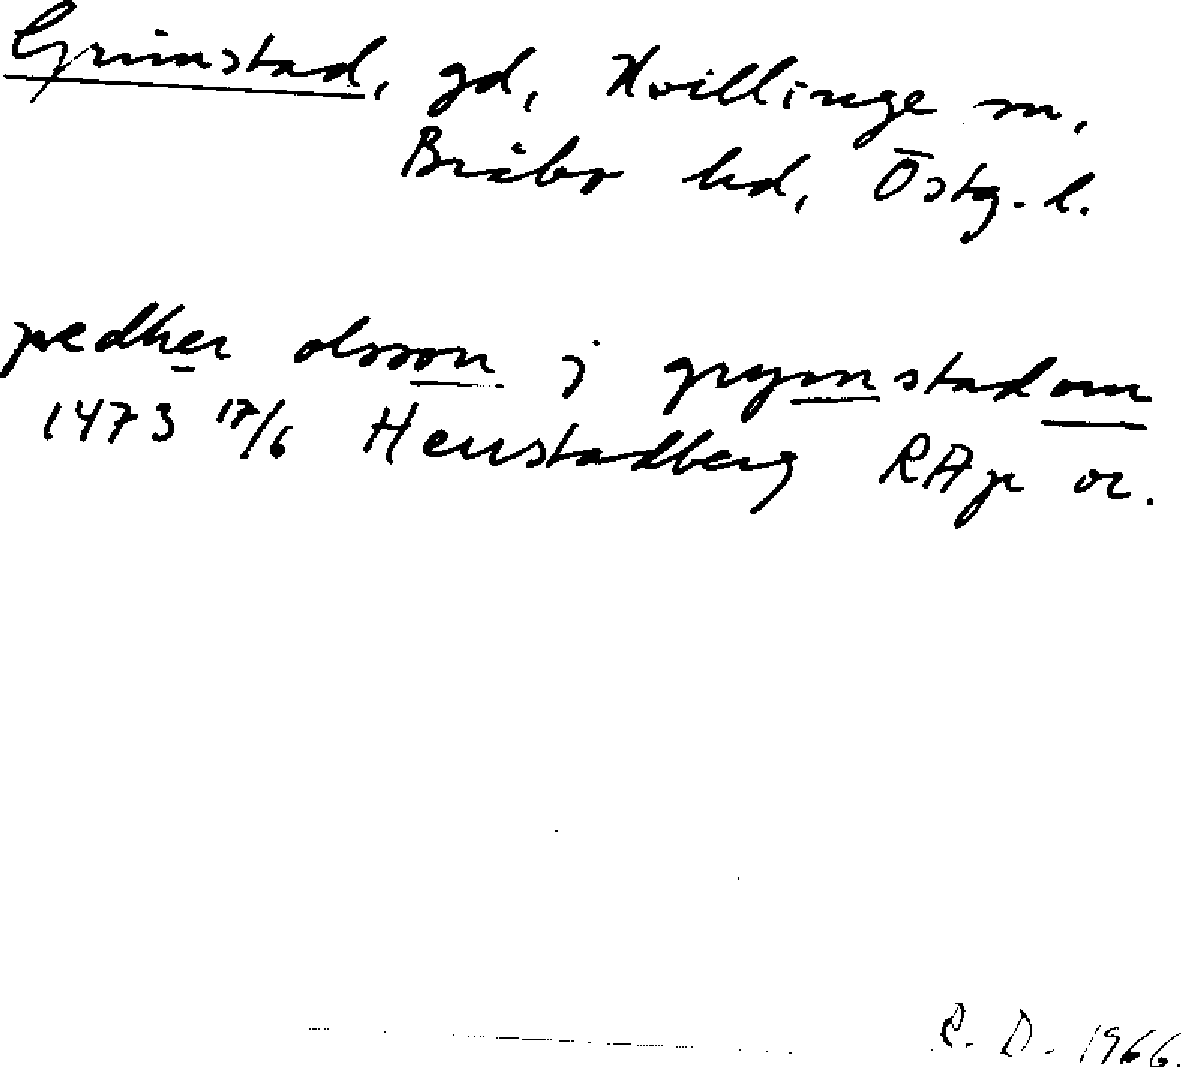 Grimstad, gd, Kvillinge sn,
Bråbo hd, Östg. l.
pedher olsson j grymstadom
1473 17/6 Herstadberg RAp or.
R. D. 1966.